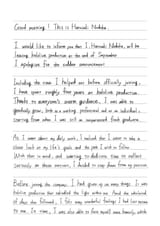 Good morning! This is Hannabi Natsuiro.
I would like to inform you that I, Hannabi Natsuiro, will be
leaving hololive production at the end of September.
I apologize for the sudden announcement.
Including the time I helped out before officially joining,
I have spent roughly four years on hololive production.
Thanks to everyone's warm guidance, I was able to
gradually grow, both as a working professional and as an individual,
starting from when I was still an inexperienced fresh graduate.
As I went about my daily work, I realized that I want to take a
closer look at my life's goals and the path I wish to follow.
With them in mind, and wanting to dedicate time to reflect
seriously on those concerns, I decided to step down from my position.
Before joining the company, I had given up on many things. It was
hololive production that rekindled the light within me. And the warmth
of those who followed, I felt many wonderful feelings I had lost return
to me. In time, I was also able to face myself more honestly, which